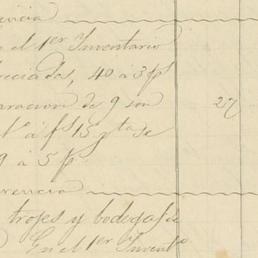 el 1er Inventario
reciadas, 40 á 3 ps
aracion de 9 son 27
á fs 15
9 á 5 ps
erencia
trojes y bodegas
En el 1er Invento